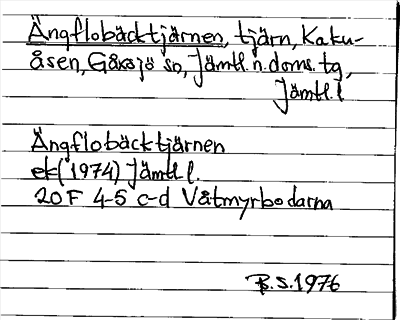 Ängflobäcktjärnen, tjärn, Kaku-
åsen, Gåxsjö sn, Jämtl. n. doms. tg,
Jämtl. l
Ängflobäcktjärnen
ek (1974) Jämtl l.
20F 4-5 c-d Våtmyrbodarna
B.S. 1976